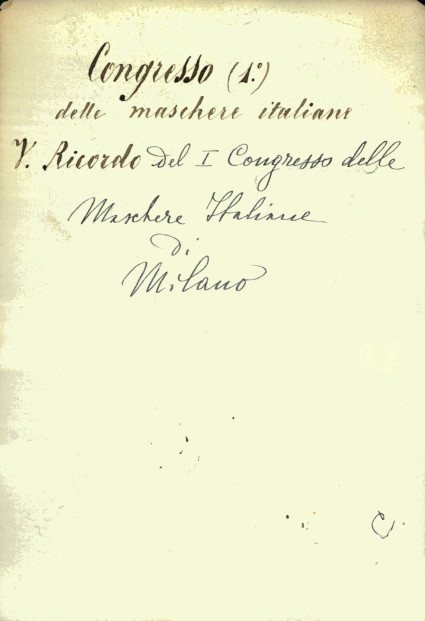 Congresso (1.º)
delle maschere italiane
V. Ricordo Del I Congresso delle
Maschere Italiane
di
Milano
C.